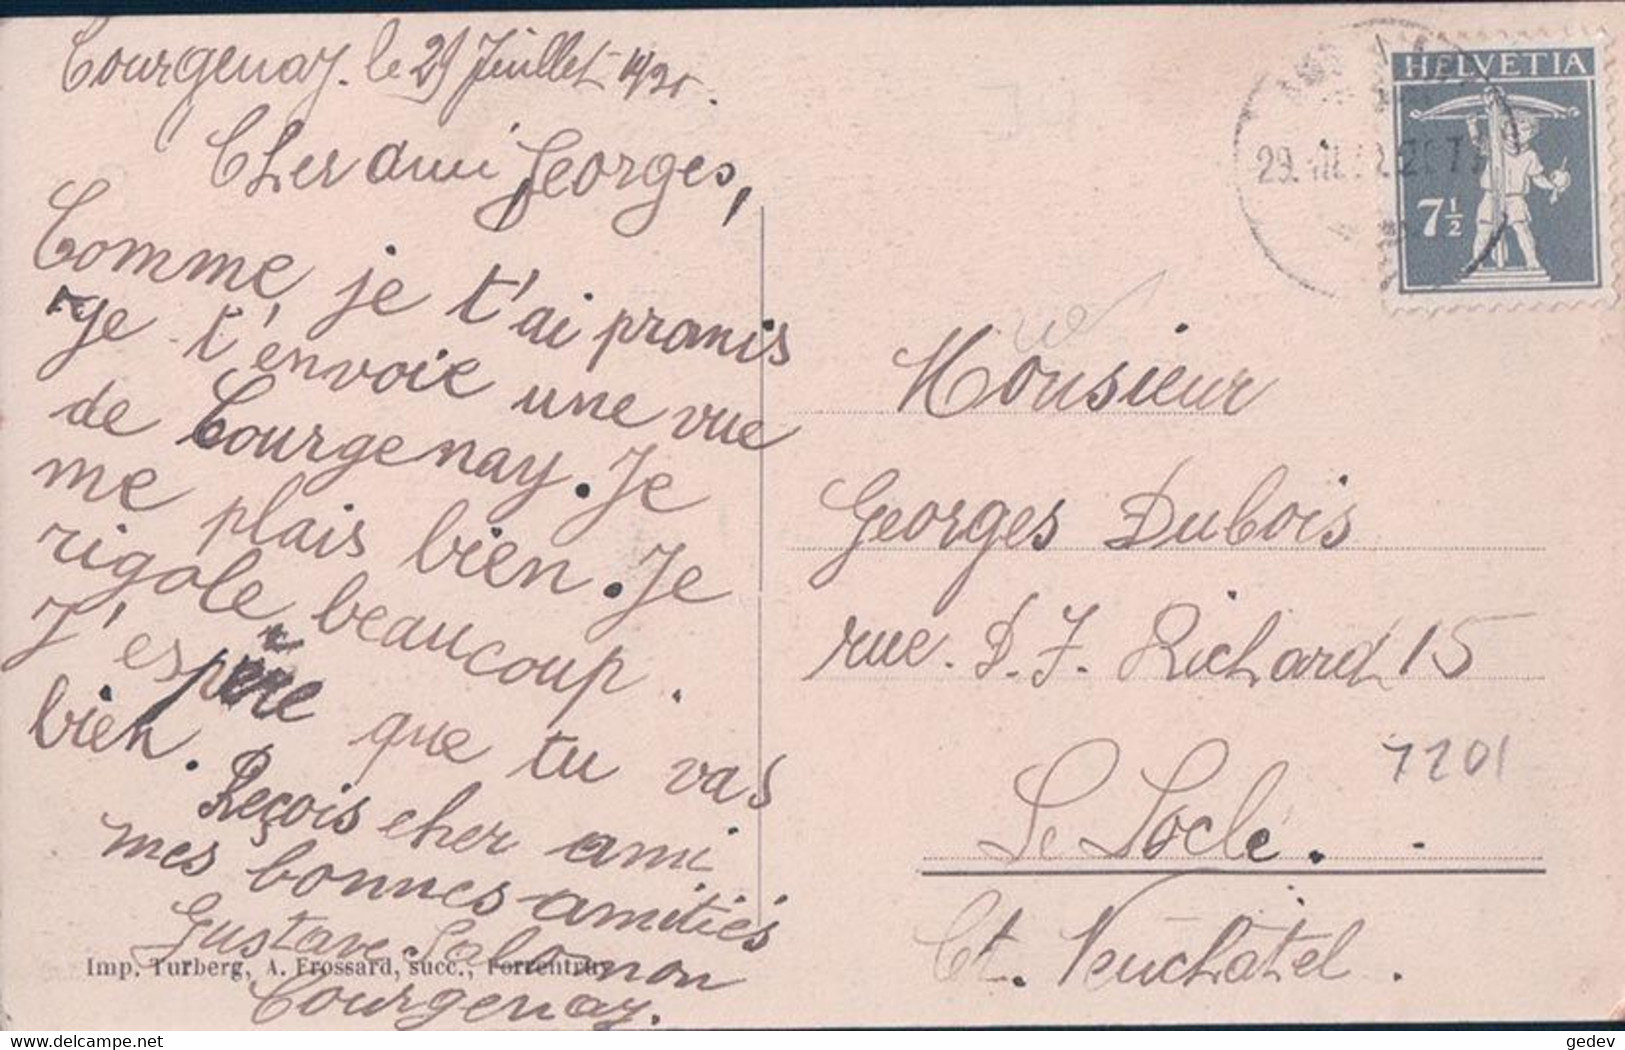 Courgenay. le 29 Juillet 1920.
Cher ami Georges,
Comme je t'ai promis
je t'envoie une vue
de Courgenay. Je
me plais bien. Je
rigole beaucoup.
J'espère que tu vas
bien.
Reçois cher ami
mes bonnes amitiés
Gustave Salomon
Courgenay.
Imp. Turberg, A. Frossard, succ., Porrentruy
HELVETIA
7½
29.
Monsieur
Georges Dubois
rue. D. J. Richard 15
Le Locle.
Ct. Neuchâtel.
7201
www.delcampe.net
gedev